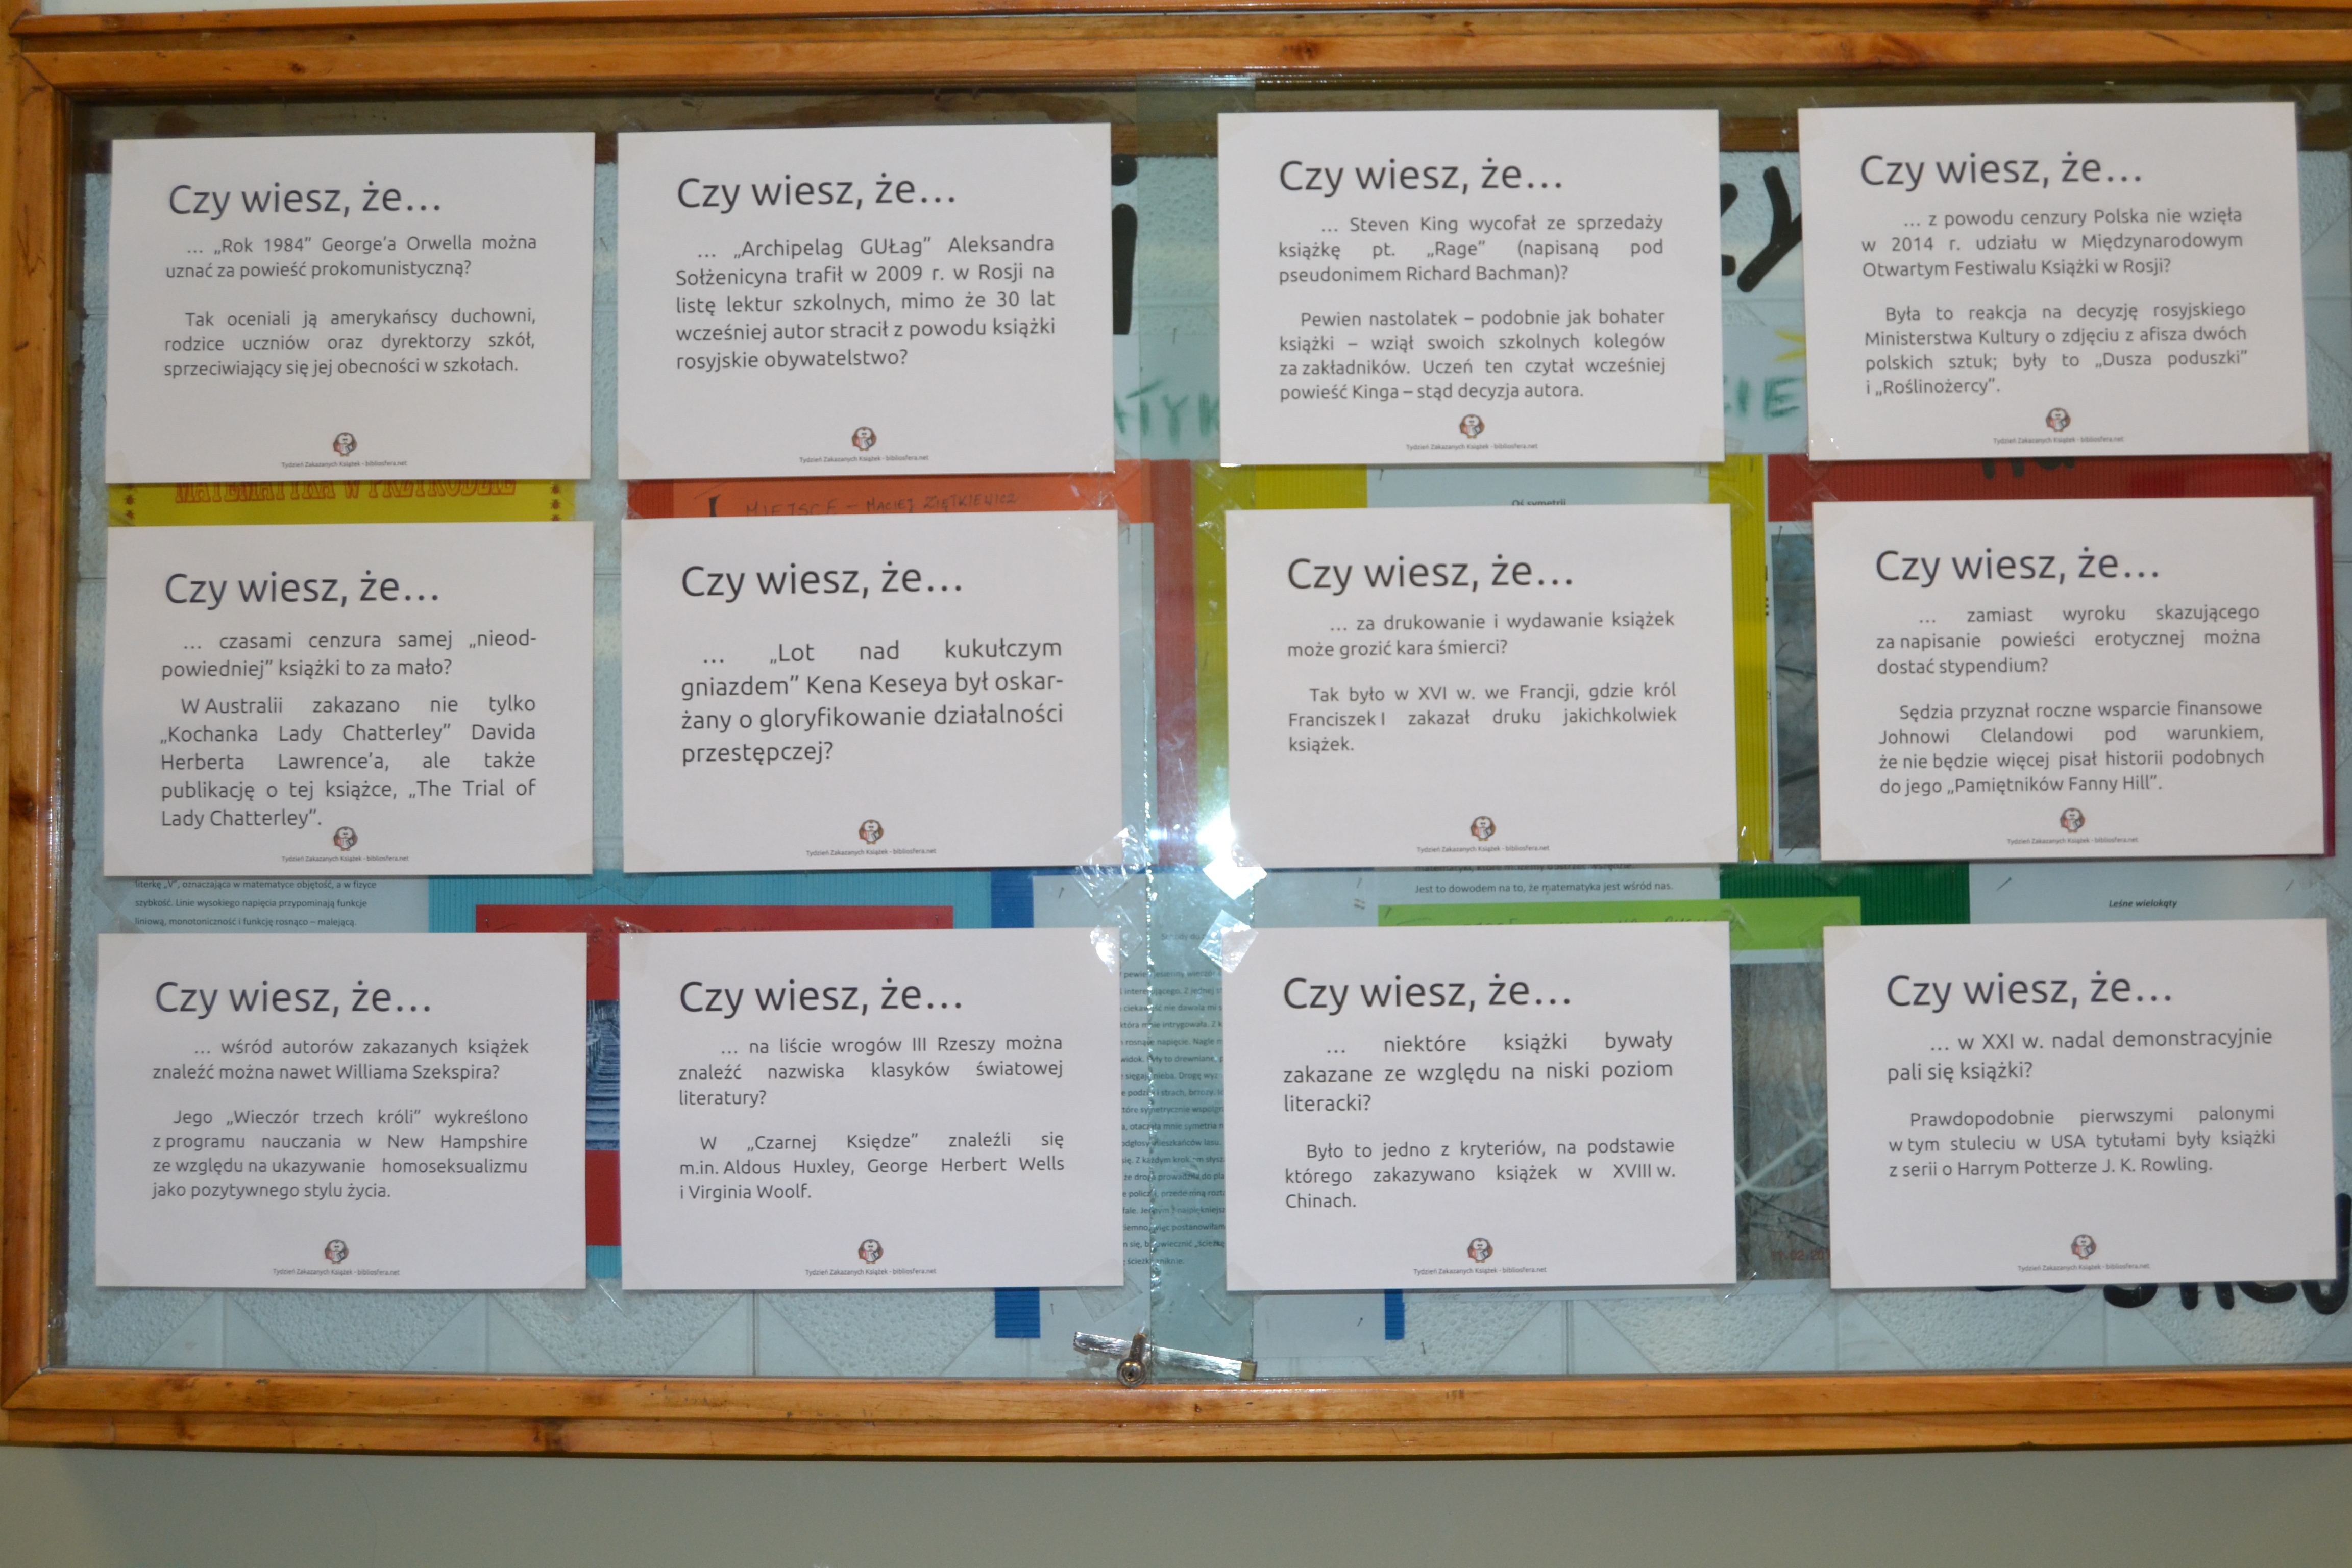 Czy wiesz, że...
... „Rok 1984” George’a Orwella można
uznać za powieść prokomunistyczną?
Tak oceniali ją amerykańscy duchowni,
rodzice uczniów oraz dyrektorzy szkół,
sprzeciwiający się jej obecności w szkołach.
Tydzień Zakazanych Książek - bibliosfera.net
Czy wiesz, że...
... „Archipelag GUŁag” Aleksandra
Sołżenicyna trafił w 2009 r. w Rosji na
listę lektur szkolnych, mimo że 30 lat
wcześniej autor stracił z powodu książki
rosyjskie obywatelstwo?
Tydzień Zakazanych Książek - bibliosfera.net
Czy wiesz, że...
... Steven King wycofał ze sprzedaży
książkę pt. „Rage” (napisaną pod
pseudonimem Richard Bachman)?
Pewien nastolatek – podobnie jak bohater
książki – wziął swoich szkolnych kolegów
za zakładników. Uczeń ten czytał wcześniej
powieść Kinga – stąd decyzja autora.
Tydzień Zakazanych Książek - bibliosfera.net
Czy wiesz, że...
... z powodu cenzury Polska nie wzięła
w 2014 r. udziału w Międzynarodowym
Otwartym Festiwalu Książki w Rosji?
Była to reakcja na decyzję rosyjskiego
Ministerstwa Kultury o zdjęciu z afisza dwóch
polskich sztuk; były to „Dusza poduszki”
i „Roślinożercy”.
Tydzień Zakazanych Książek - bibliosfera.net
MATEMATYKA W PRZYRODZIE
I MIEJSCE – MACIEJ ZIĘTKIEWICZ
Oś symetrii
Czy wiesz, że...
... czasami cenzura samej „nieod-
powiedniej” książki to za mało?
W Australii zakazano nie tylko
„Kochanka Lady Chatterley” Davida
Herberta Lawrence’a, ale także
publikację o tej książce, „The Trial of
Lady Chatterley”.
Tydzień Zakazanych Książek - bibliosfera.net
Czy wiesz, że...
... „Lot nad kukułczym
gniazdem” Kena Keseya był oskar-
żany o gloryfikowanie działalności
przestępczej?
Tydzień Zakazanych Książek - bibliosfera.net
Czy wiesz, że...
... za drukowanie i wydawanie książek
może grozić kara śmierci?
Tak było w XVI w. we Francji, gdzie król
Franciszek I zakazał druku jakichkolwiek
książek.
Tydzień Zakazanych Książek - bibliosfera.net
Czy wiesz, że...
... zamiast wyroku skazującego
za napisanie powieści erotycznej można
dostać stypendium?
Sędzia przyznał roczne wsparcie finansowe
Johnowi Clelandowi pod warunkiem,
że nie będzie więcej pisał historii podobnych
do jego „Pamiętników Fanny Hill”.
Tydzień Zakazanych Książek - bibliosfera.net
literkę „V”, oznaczająca w matematyce objętość, a w fizyce
szybkość. Linie wysokiego napięcia przypominają funkcje
liniową, monotoniczność i funkcję rosnąco – malejącą.
Jest to dowodem na to, że matematyka jest wśród nas.
Leśne wielokąty
Czy wiesz, że...
... wśród autorów zakazanych książek
znaleźć można nawet Williama Szekspira?
Jego „Wieczór trzech króli” wykreślono
z programu nauczania w New Hampshire
ze względu na ukazywanie homoseksualizmu
jako pozytywnego stylu życia.
Tydzień Zakazanych Książek - bibliosfera.net
Czy wiesz, że...
... na liście wrogów III Rzeszy można
znaleźć nazwiska klasyków światowej
literatury?
W „Czarnej Księdze” znaleźli się
m.in. Aldous Huxley, George Herbert Wells
i Virginia Woolf.
Tydzień Zakazanych Książek - bibliosfera.net
Czy wiesz, że...
... niektóre książki bywały
zakazane ze względu na niski poziom
literacki?
Było to jedno z kryteriów, na podstawie
którego zakazywano książek w XVIII w.
Chinach.
Tydzień Zakazanych Książek - bibliosfera.net
Czy wiesz, że...
... w XXI w. nadal demonstracyjnie
pali się książki?
Prawdopodobnie pierwszymi palonymi
w tym stuleciu w USA tytułami były książki
z serii o Harrym Potterze J. K. Rowling.
Tydzień Zakazanych Książek - bibliosfera.net